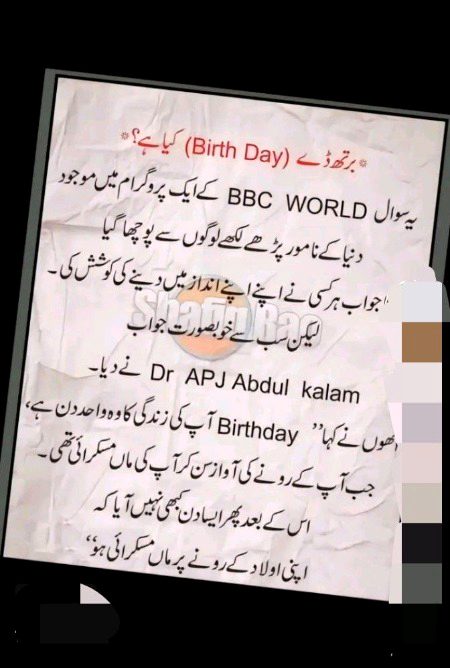 * برتھ ڈے (Birth Day) کیا ہے؟ *
یہ سوال BBC WORLD کے ایک پروگرام میں موجود
دنیا کے نامور پڑھے لکھے لوگوں سے پوچھا گیا
جواب ہر کسی نے اپنے اپنے انداز میں دینے کی کوشش کی۔
لیکن سب سے خوبصورت جواب
Dr APJ Abdul kalam نے دیا۔
انھوں نے کہا ”Birthday آپ کی زندگی کا وہ واحد دن ہے،
جب آپ کے رونے کی آواز سن کر آپ کی ماں مسکرائی تھی۔
اس کے بعد پھر ایسا دن کبھی نہیں آیا کہ
اپنی اولاد کے رونے پر ماں مسکرائی ہو“